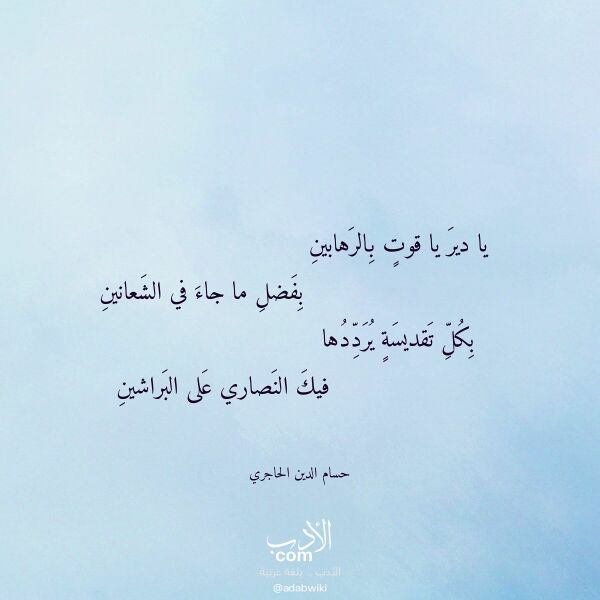 يا ديرَ يا قوتٍ بِالرَهابينِ
بِفَضلِ ما جاءَ في الشَعانينِ
بِكُلِّ تَقديسَةٍ يُرَدِّدُها
فيكَ النَصاري عَلى البَراشينِ
حسام الدين الحاجري
الأدب
com
الأدب .. بلغة عربية
@adabwiki